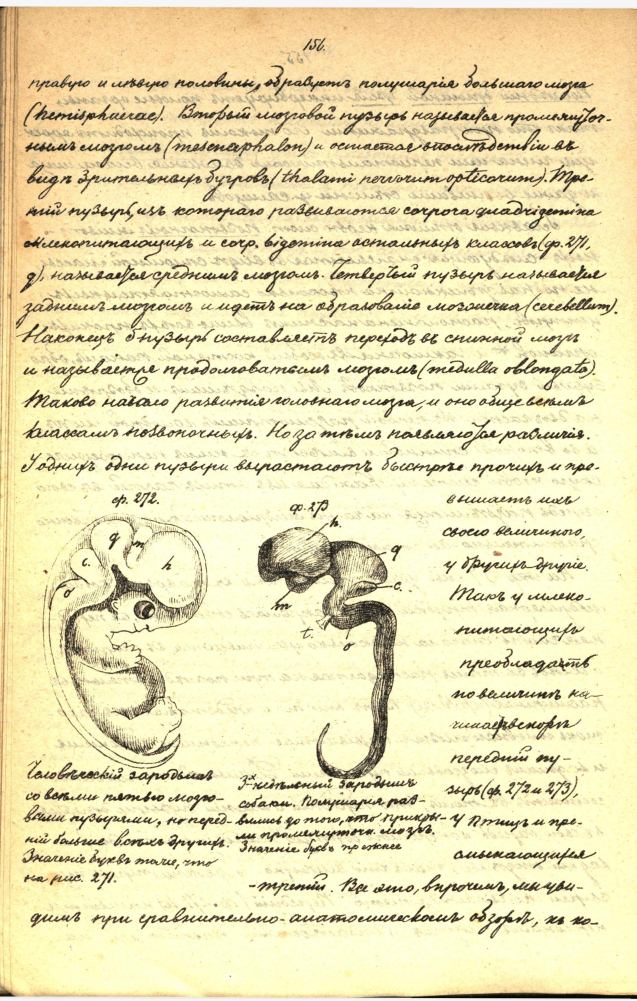 156.
правую и лѣвую половины, образуетъ полушарія большаго мозга
(hemisphaerae). Второй мозговой пузырь называется промежуточ-
нымъ мозгомъ (mesencephalon) и остается впослѣдствіи въ
видѣ Зрительныхъ бугровъ (thalami nervorum opticorum). Тре-
тій пузырь, изъ котораго развиваются corpora quadrigemina
млекопитающихъ и corp. bigemina остальныхъ классовъ (ф. 271,
q), называется среднимъ мозгомъ. Четвертый пузырь называется
заднимъ мозгомъ и идетъ на образованіе мозжечка (cerebellum).
Наконецъ 5 пузырь составляетъ переходъ въ спинной мозгъ
и называется продолговатымъ мозгомъ (medulla oblongata).
Таково начало развитія головнаго мозга, и оно обще всѣмъ
классамъ позвоночныхъ. Но затѣмъ появляются различія.
У однихъ одни пузыри вырастаютъ быстрѣе прочихъ и пре-
ф. 272.
q
m
c.
h
o
ф. 273
h.
q
c.
m
t.
o
вышаетъ ихъ
своею величиною,
у другихъ другіе.
Такъ у млеко-
питающихъ
преобладаетъ
по величинѣ на-
передній пу-
зырь (ф. 272 и 273),
у птицъ и пре-
смыкающихся
Человѣческій зародышъ
со всѣми пятью мозго-
выми пузырями, но перед-
ній больше всѣхъ другихъ.
Значеніе буквъ тоже, что
на рис. 271.
3-х недѣльный зародышъ
собаки. Полушарія раз-
вились до того, что прикры-
ли промежуточн. мозгъ.
Значеніе буквъ прежнее
-третій. Все это, впрочемъ, мы уви-
димъ при сравнительно-анатомическомъ обзорѣ, къ ко-